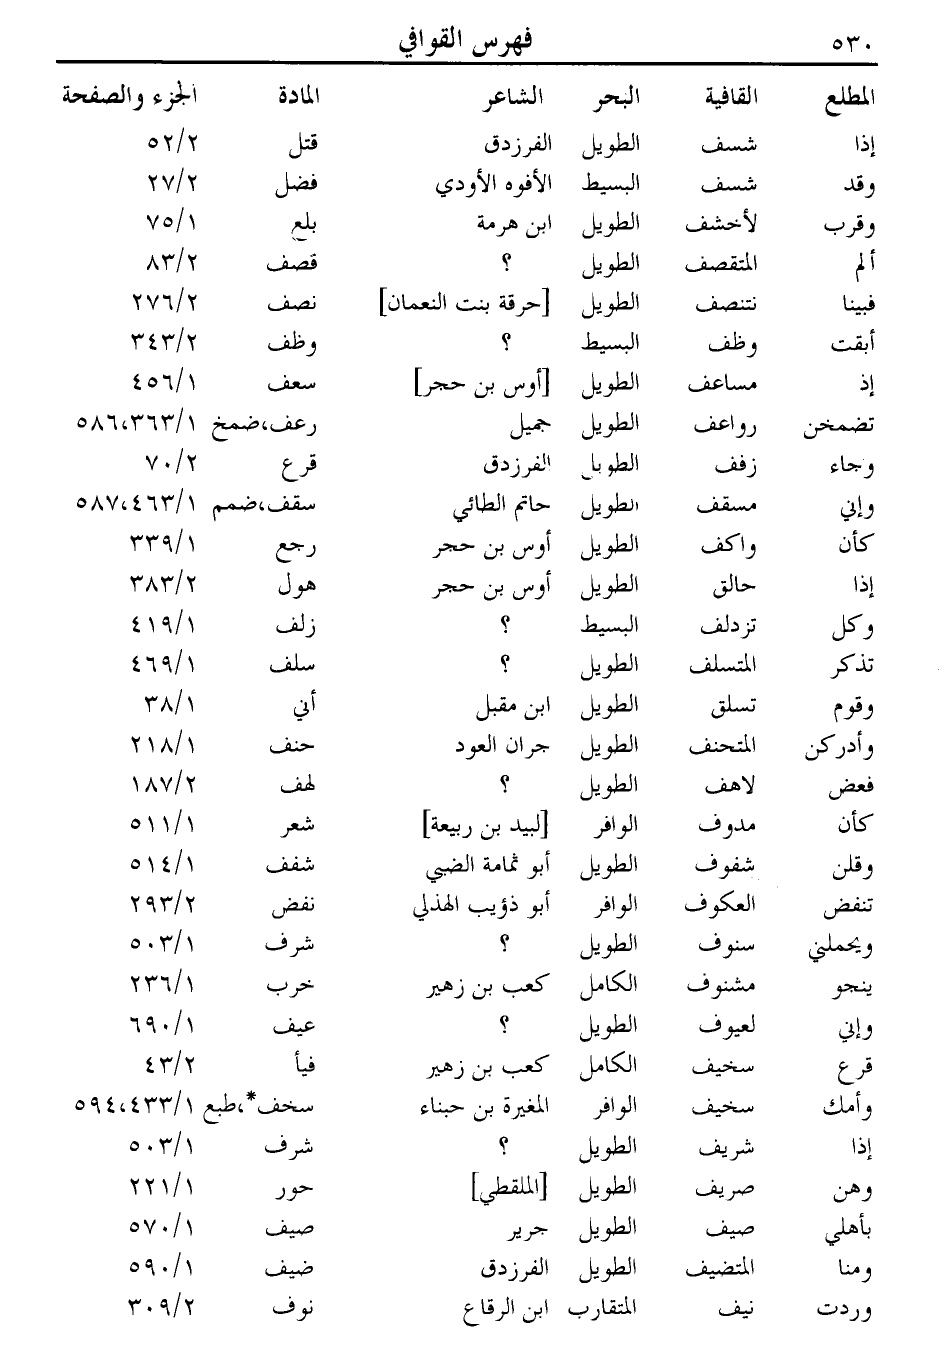 ٥٣٠ فهرس القوافي
المطلع القافية البحر الشاعر المادة الجزء والصفحة
إذا شسف الطويل الفرزدق قتل ٥٢/٢
وقد شسف البسيط الأفوه الأودي فضل ٢٧/٢
وقرب لأخشف الطويل ابن هرمة بلع ٧٥/١
ألم المتقصف الطويل ؟ قصف ٨٣/٢
فبينا نتنصف الطويل [حرقة بنت النعمان] نصف ٢٧٦/٢
أبقت وظف البسيط ؟ وظف ٣٤٣/٢
إذ مساعف الطويل [أوس بن حجر] سعف ٤٥٦/١
تضمخن رواعف الطويل جميل رعف،ضمخ ٥٨٦،٣٦٣/١
وجاء زفف الطويل الفرزدق قرع ٧٠/٢
وإني مسقف الطويل حاتم الطائي سقف،ضمم ٥٨٧،٤٦٣/١
كأن واكف الطويل أوس بن حجر رجع ٣٣٩/١
إذا حالق الطويل أوس بن حجر هول ٣٨٣/٢
وكل تزدلف البسيط ؟ زلف ٤١٩/١
تذكر المتسلف الطويل ؟ سلف ٤٦٩/١
وقوم تسلق الطويل ابن مقبل أني ٣٨/١
وأدركن المتحنف الطويل جران العود حنف ٢١٨/١
فعض لاهف الطويل ؟ لهف ١٨٧/٢
كأن مدوف الوافر [لبيد بن ربيعة] شعر ٥١١/١
وقلن شفوف الطويل أبو ثمامة الضبي شفف ٥١٤/١
تنفض العكوف الوافر أبو ذؤيب الهذلي نفض ٢٩٣/٢
ويحملني سنوف الطويل ؟ شرف ٥٠٣/١
ينجو مشنوف الكامل كعب بن زهير خرب ٢٣٦/١
وإني لعيوف الطويل ؟ عيف ٦٩٠/١
قرع سخيف الكامل كعب بن زهير فيأ ٤٣/٢
وأمك سخيف الوافر المغيرة بن حبناء سخف*،طبع ٥٩٤،٤٣٣/١
إذا شريف الطويل ؟ شرف ٥٠٣/١
وهن صريف الطويل [الملقطي] حور ٢٢١/١
بأهلي صيف الطويل جرير صيف ٥٧٠/١
ومنا المتضيف الطويل الفرزدق ضيف ٥٩٠/١
وردت نيف المتقارب ابن الرقاع نوف ٣٠٩/٢